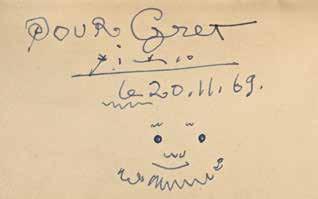 POUR Gret
Picasso
le 20.11.69.